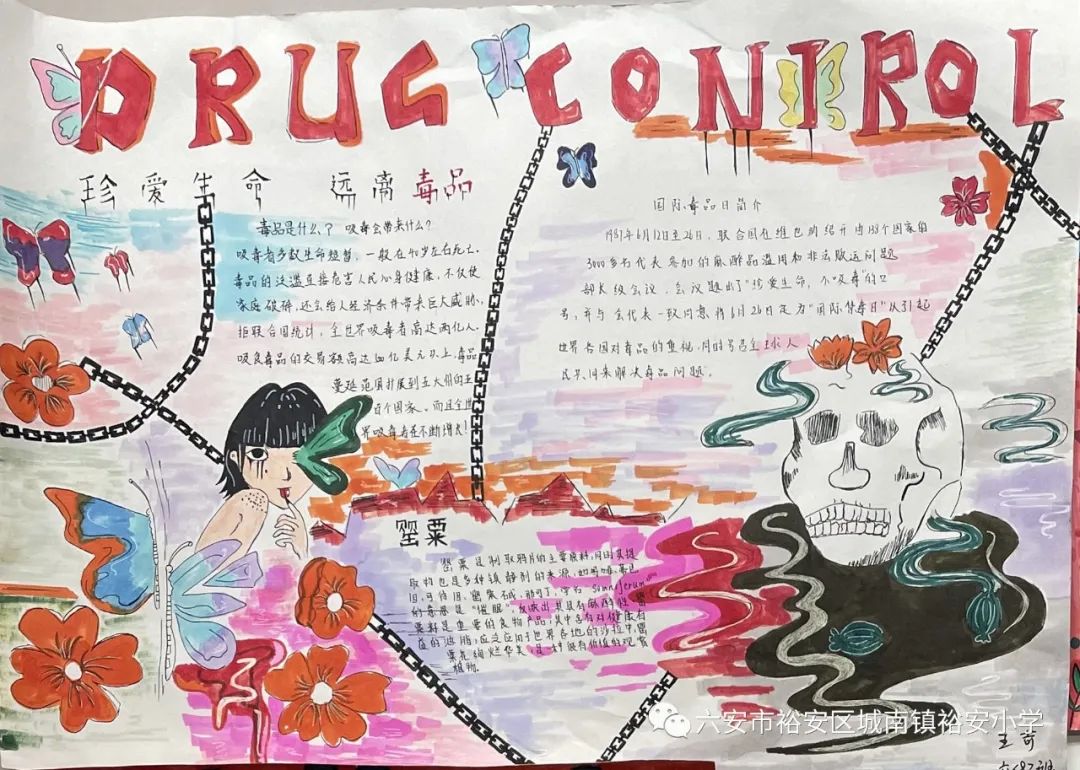 DRUG CONTROL
珍爱生命 远离毒品
毒品是什么？ 吸毒会带来什么？
吸毒者多数生命短暂，一般在40岁左右死亡.
毒品的泛滥直接危害人民心身健康，不仅使
家庭破碎，还会给人经济条件带来巨大威胁，
据联合国统计，全世界吸毒者高达两亿人.
吸食毒品的交易额高达四亿美元以上，毒品
蔓延范围扩展到五大州的
百个国家。而且全世
界吸毒者在不断增大!
国际毒品日简介
1987年6月12日至26日，联合国在维也纳召开由138个国家的
3000多名代表参加的麻醉品滥用和非法贩运问题
部长级会议，会议题出了“珍爱生命，不吸毒”的口
号，并与会代表一致同意将6月26日定为“国际禁毒日”从引起
世界各国对毒品的重视，同时号召全球人
民共同来解决毒品问题。
罂粟
罂粟是制取鸦片的主要原料，同时其提
取物也是多种镇静剂的来源，如吗啡、蒂巴
因、可待因、罂粟 somniferum
的意思是“催眠”，反映出其具有麻醉性 罂
粟籽是重要的食物产品，其中含有对健康有
益的油脂，广泛应用于世界各地的沙拉中，罂
粟花绚烂华美，是一种很有价值的观赏
植物。
六安市裕安区城南镇裕安小学